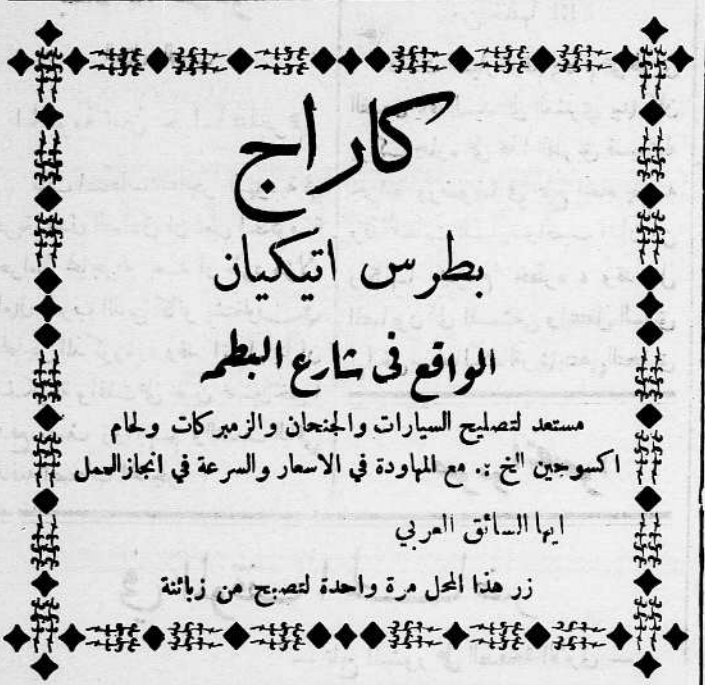 كاراج
بطرس اتيكيان
الواقع في شارع البطمه
مستعد لتصليح السيارات والجنحان والزمبركات ولحام
اكسوجين الخ .: مع المهاودة في الاسعار والسرعة في انجاز العمل
ايها السائق العربي
زر هذا المحل مرة واحدة لتصبح من زبائنة